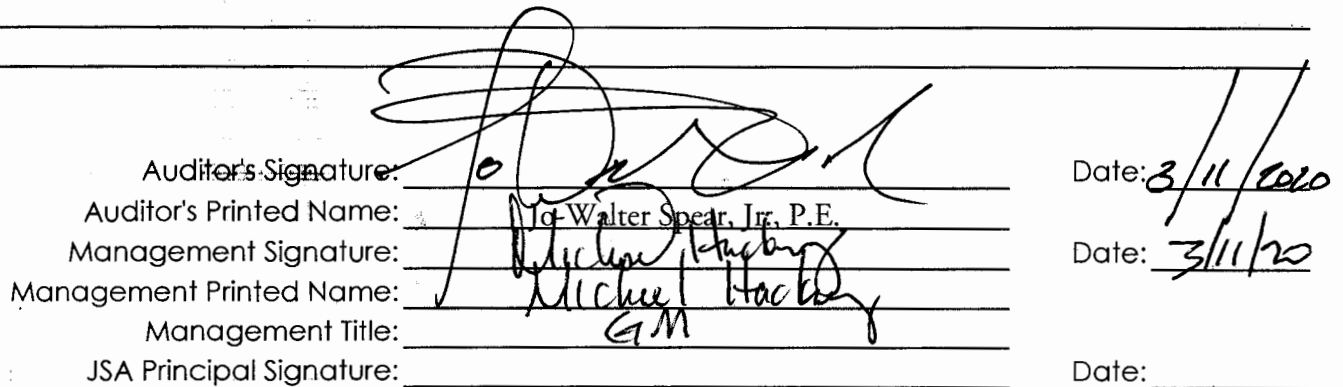 Auditor's Signature: Date: 3/11/2020
Auditor's Printed Name: Jo-Walter Spear, Jr., P.E.
Management Signature: Date: 3/11/20
Management Printed Name: Michael
Management Title: GM
JSA Principal Signature: Date: